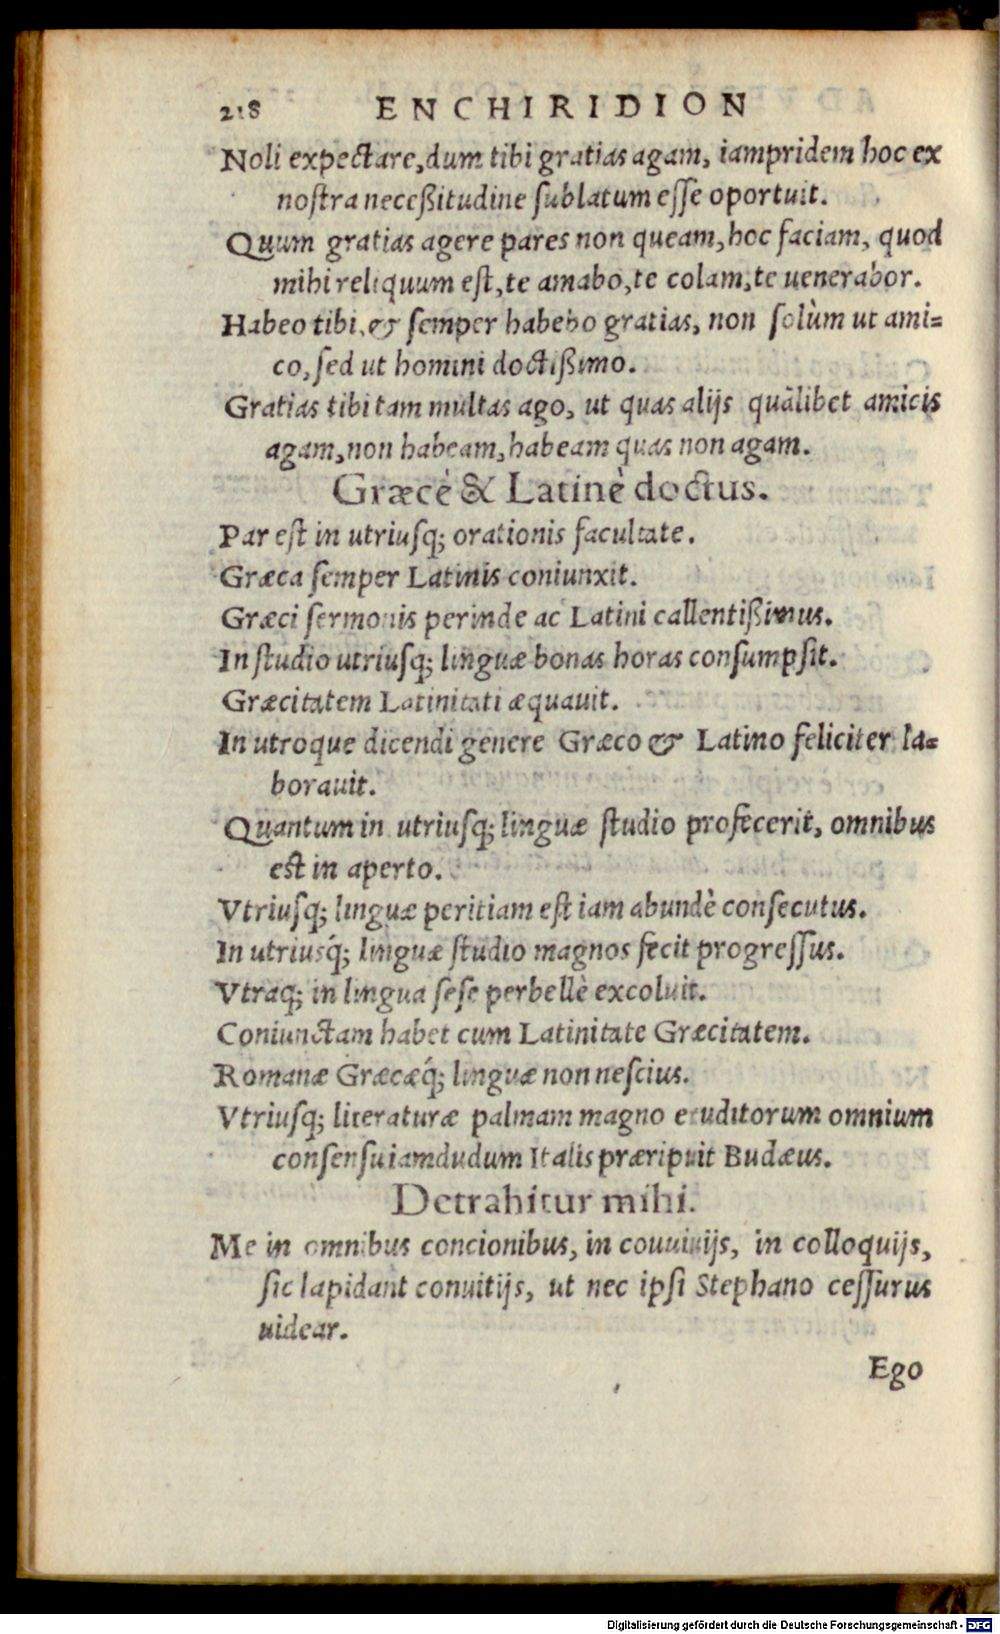 218 ENCHIRIDION
Noli expectare, dum tibi gratias agam, iampridem hoc ex
nostra neceßitudine ſublatum eſſe oportuit.
Quum gratias agere pares non queam, hoc faciam, quod
mihi reliquum eſt, te amabo, te colam, te uenerabor.
Habeo tibi, & ſemper habebo gratias, non ſolùm ut ami=
co, ſed ut homini doctißimo.
Gratias tibi tam multas ago, ut quas alijs quãlibet amicis
agam, non habeam, habeam quas non agam.
Græcè & Latinè doctus.
Par eſt in utriuſq; orationis facultate.
Græca ſemper Latinis coniunxit.
Græci ſermonis perinde ac Latini callentißimus.
In ſtudio utriuſq; linguæ bonas horas conſumpſit.
Græcitatem Latinitati æquauit.
In utroque dicendi genere Græco & Latino feliciter la=
borauit.
Quantum in utriuſq; linguæ ſtudio profecerit, omnibus
est in aperto.
Vtriuſq; linguæ peritiam eſt iam abundè conſecutus.
In utriusq́; linguæ ſtudio magnos fecit progreſſus.
Vtraq; in lingua ſeſe perbellè excoluit.
Coniunctam habet cum Latinitate Græcitatem.
Romanæ Græcæq́; linguæ non neſcius.
Vtriuſq; literaturæ palmam magno eruditorum omnium
conſenſu iamdudum Italis præripuit Budæus.
Detrahitur mihi.
Me in omnibus concionibus, in couuiuijs, in colloquijs,
ſic lapidant conuitijs, ut nec ipſi Stephano ceſſurus
uidear.
Ego
Digitalisierung gefördert durch die Deutsche Forschungsgemeinschaft - DFG